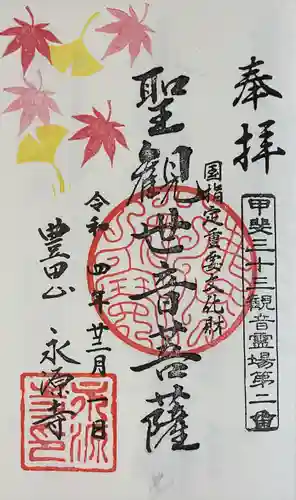 奉拝
甲斐三十三観音霊場第二番
国指定重要文化財
聖観世音菩薩
令和四年廿二月一日
豊田山
永源寺